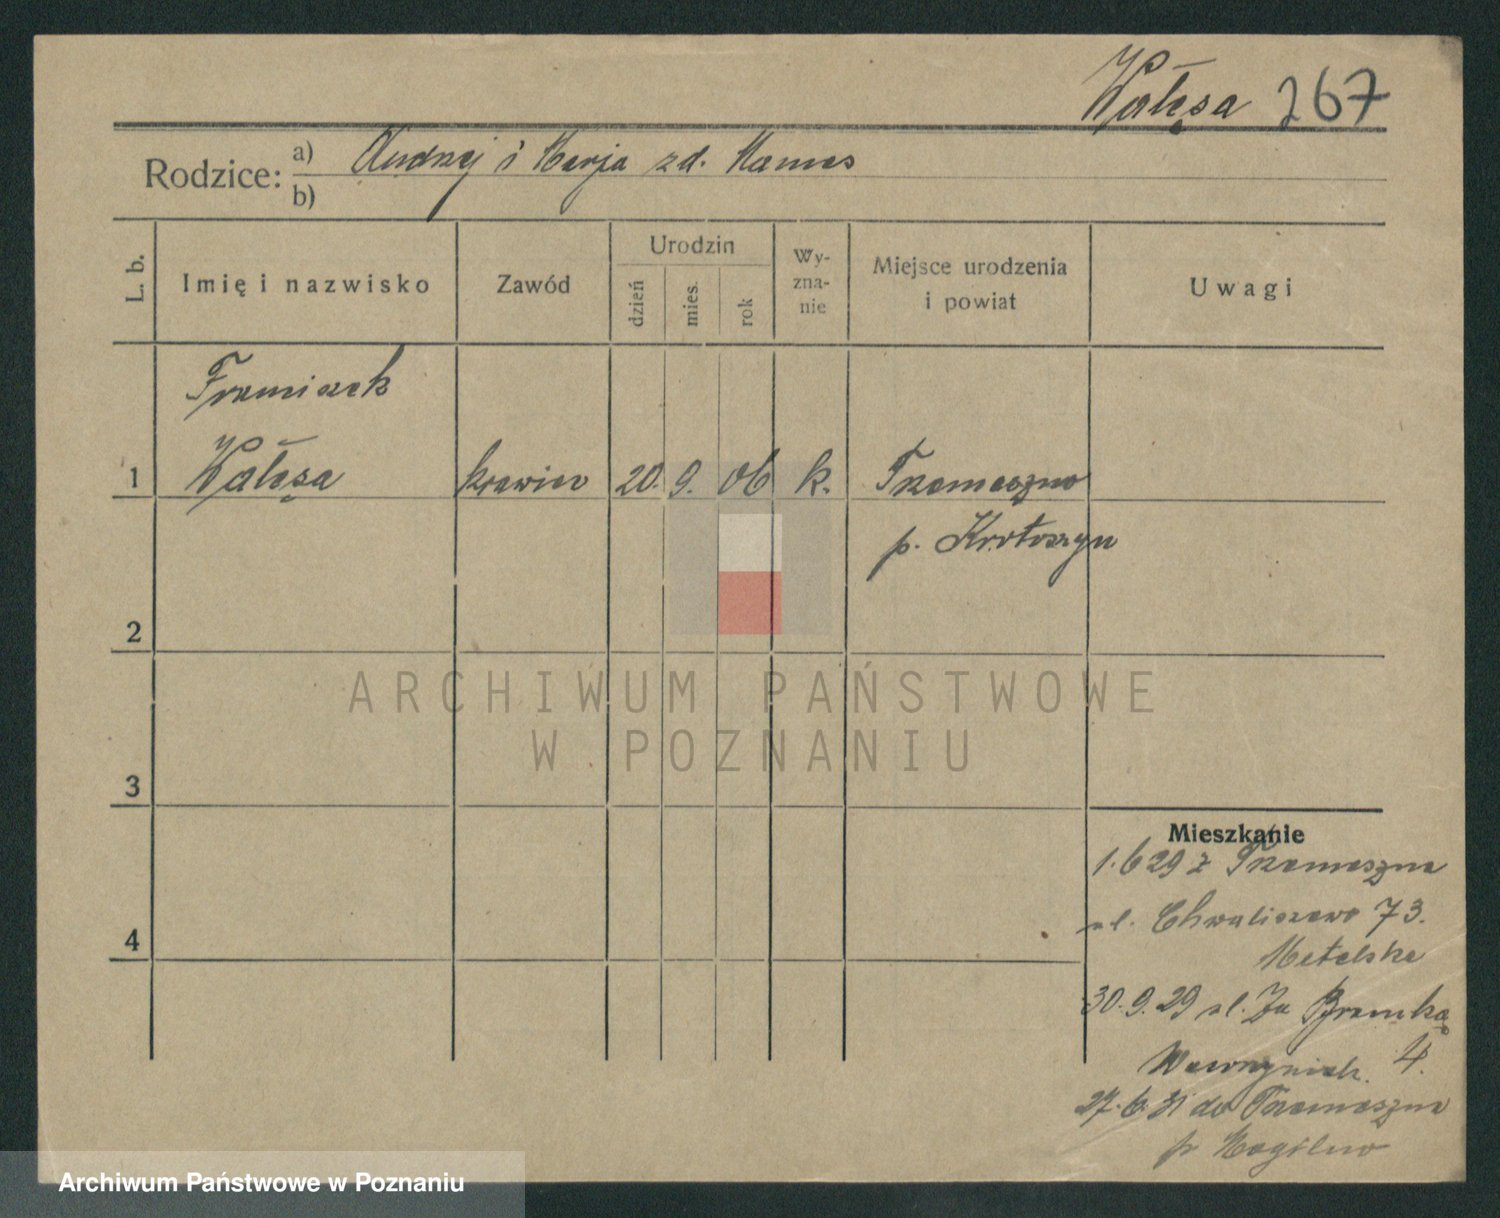 Wałęsa 267
Rodzice: a) Andrzej i Marja zd. Mames
b)
L. b. Imię i nazwisko Zawód Urodzin dzień mies. rok Wy-zna-nie Miejsce urodzenia i powiat Uwagi
Franciszek
1 Wałęsa krawiec 20. 9. 06 k. Trzemeszno
p. Krotoszyn
2
ARCHIWUM PAŃSTWOWE
W POZNANIU
3
Mieszkanie
1.6 29 z Trzemeszna
4 ul. Chwaliszewo 73.
Metelska
30.9.29 ul. Za Bramką
Wawrzyniak. 4.
27.6.31 do Trzemeszna
p Mogilno
Archiwum Państwowe w Poznaniu